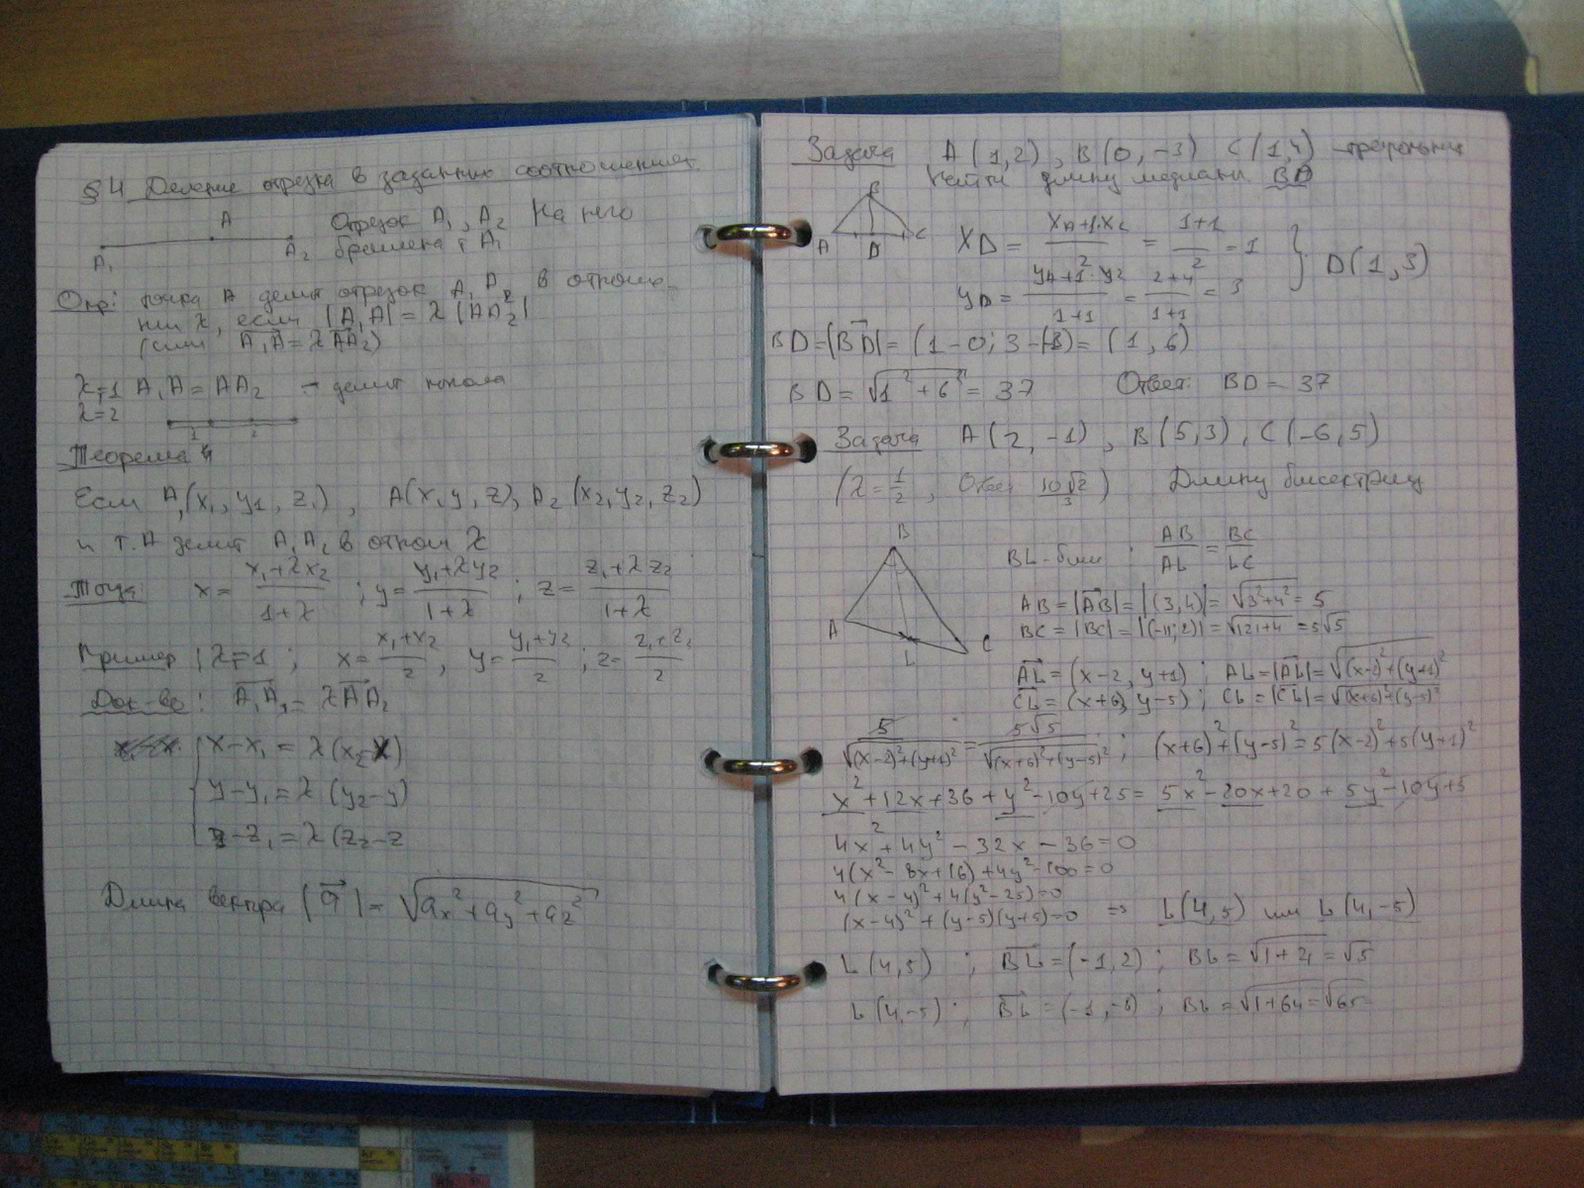 §4 Деление отрезка в заданных соотношениях
A
A₁
A₂
Отрезок A₁, A₂ На него
брошена т A₁
Опр: точка A делит отрезок A₁ A₂ в отноше-
нии λ, если |A₁A| = λ |AA₂|
(или A₁A = λ AA₂)
λ=1 A₁A = AA₂ → делит пополам
λ=2
1 2
Теорема 4
Если A₁(x₁, y₁, z₁), A(x, y, z), A₂(x₂, y₂, z₂)
и т. A делит A₁A₂ в отнош λ
Тогда: x = (x₁+λx₂)/(1+λ) ; y = (y₁+λy₂)/(1+λ) ; z = (z₁+λz₂)/(1+λ)
Пример | λ=1 ; x = (x₁+x₂)/2 , y = (y₁+y₂)/2 ; z = (z₁+z₂)/2
Док-во: A₁A = λ AA₂
x-x₁ = λ(x₂-x)
y-y₁ = λ(y₂-y)
z-z₁ = λ(z₂-z
Длина вектора |a| = √(aₓ²+a_y²+a_z²)
Задача A(1,2), B(0,-3) C(1,4) - треугольник
Найти длину медианы BD
B
A D C
X_D = (x_A+1·x₂)/2 = (1+1)/2 = 1
y_D = (y_A+1·y₂)/(1+1) = (2+4)/(1+1) = 3
} D(1,3)
BD=|BD| = (1-0; 3-(-3)) = (1, 6)
BD = √(1²+6²) = 37 Ответ: BD = 37
Задача A(2,-1), B(5,3), C(-6,5)
(λ = 1/2, Ответ 10√2/3) Длину биссектрисы
B
A
L
C
BL - бисс : AB/AL = BC/LC
AB = |AB| = |(3,4)| = √(3²+4²) = 5
BC = |BC| = |(-11; 2)| = √(121+4) = 5√5
AL = (x-2, y+1) ; AL = |AL| = √((x-2)²+(y+1)²)
CL = (x+6, y-5) ; CL = |CL| = √((x+6)²+(y-5)²)
5/√((x-2)²+(y+1)²) = 5√5/√((x+6)²+(y-5)²) ; (x+6)²+(y-5)² = 5(x-2)²+5(y+1)²
x²+12x+36+y²-10y+25 = 5x²-20x+20+5y²-10y+5
4x²+4y²-32x-36=0
4(x²-8x+16)+4y²-100=0
4(x-4)²+4(y²-25)=0
(x-4)²+(y-5)(y+5)=0 => L(4,5) или L(4,-5)
L(4,5) ; BL = (-1,2) ; BL = √(1+4) = √5
L(4,-5) ; BL = (-1,-8) ; BL = √(1+64) = √65